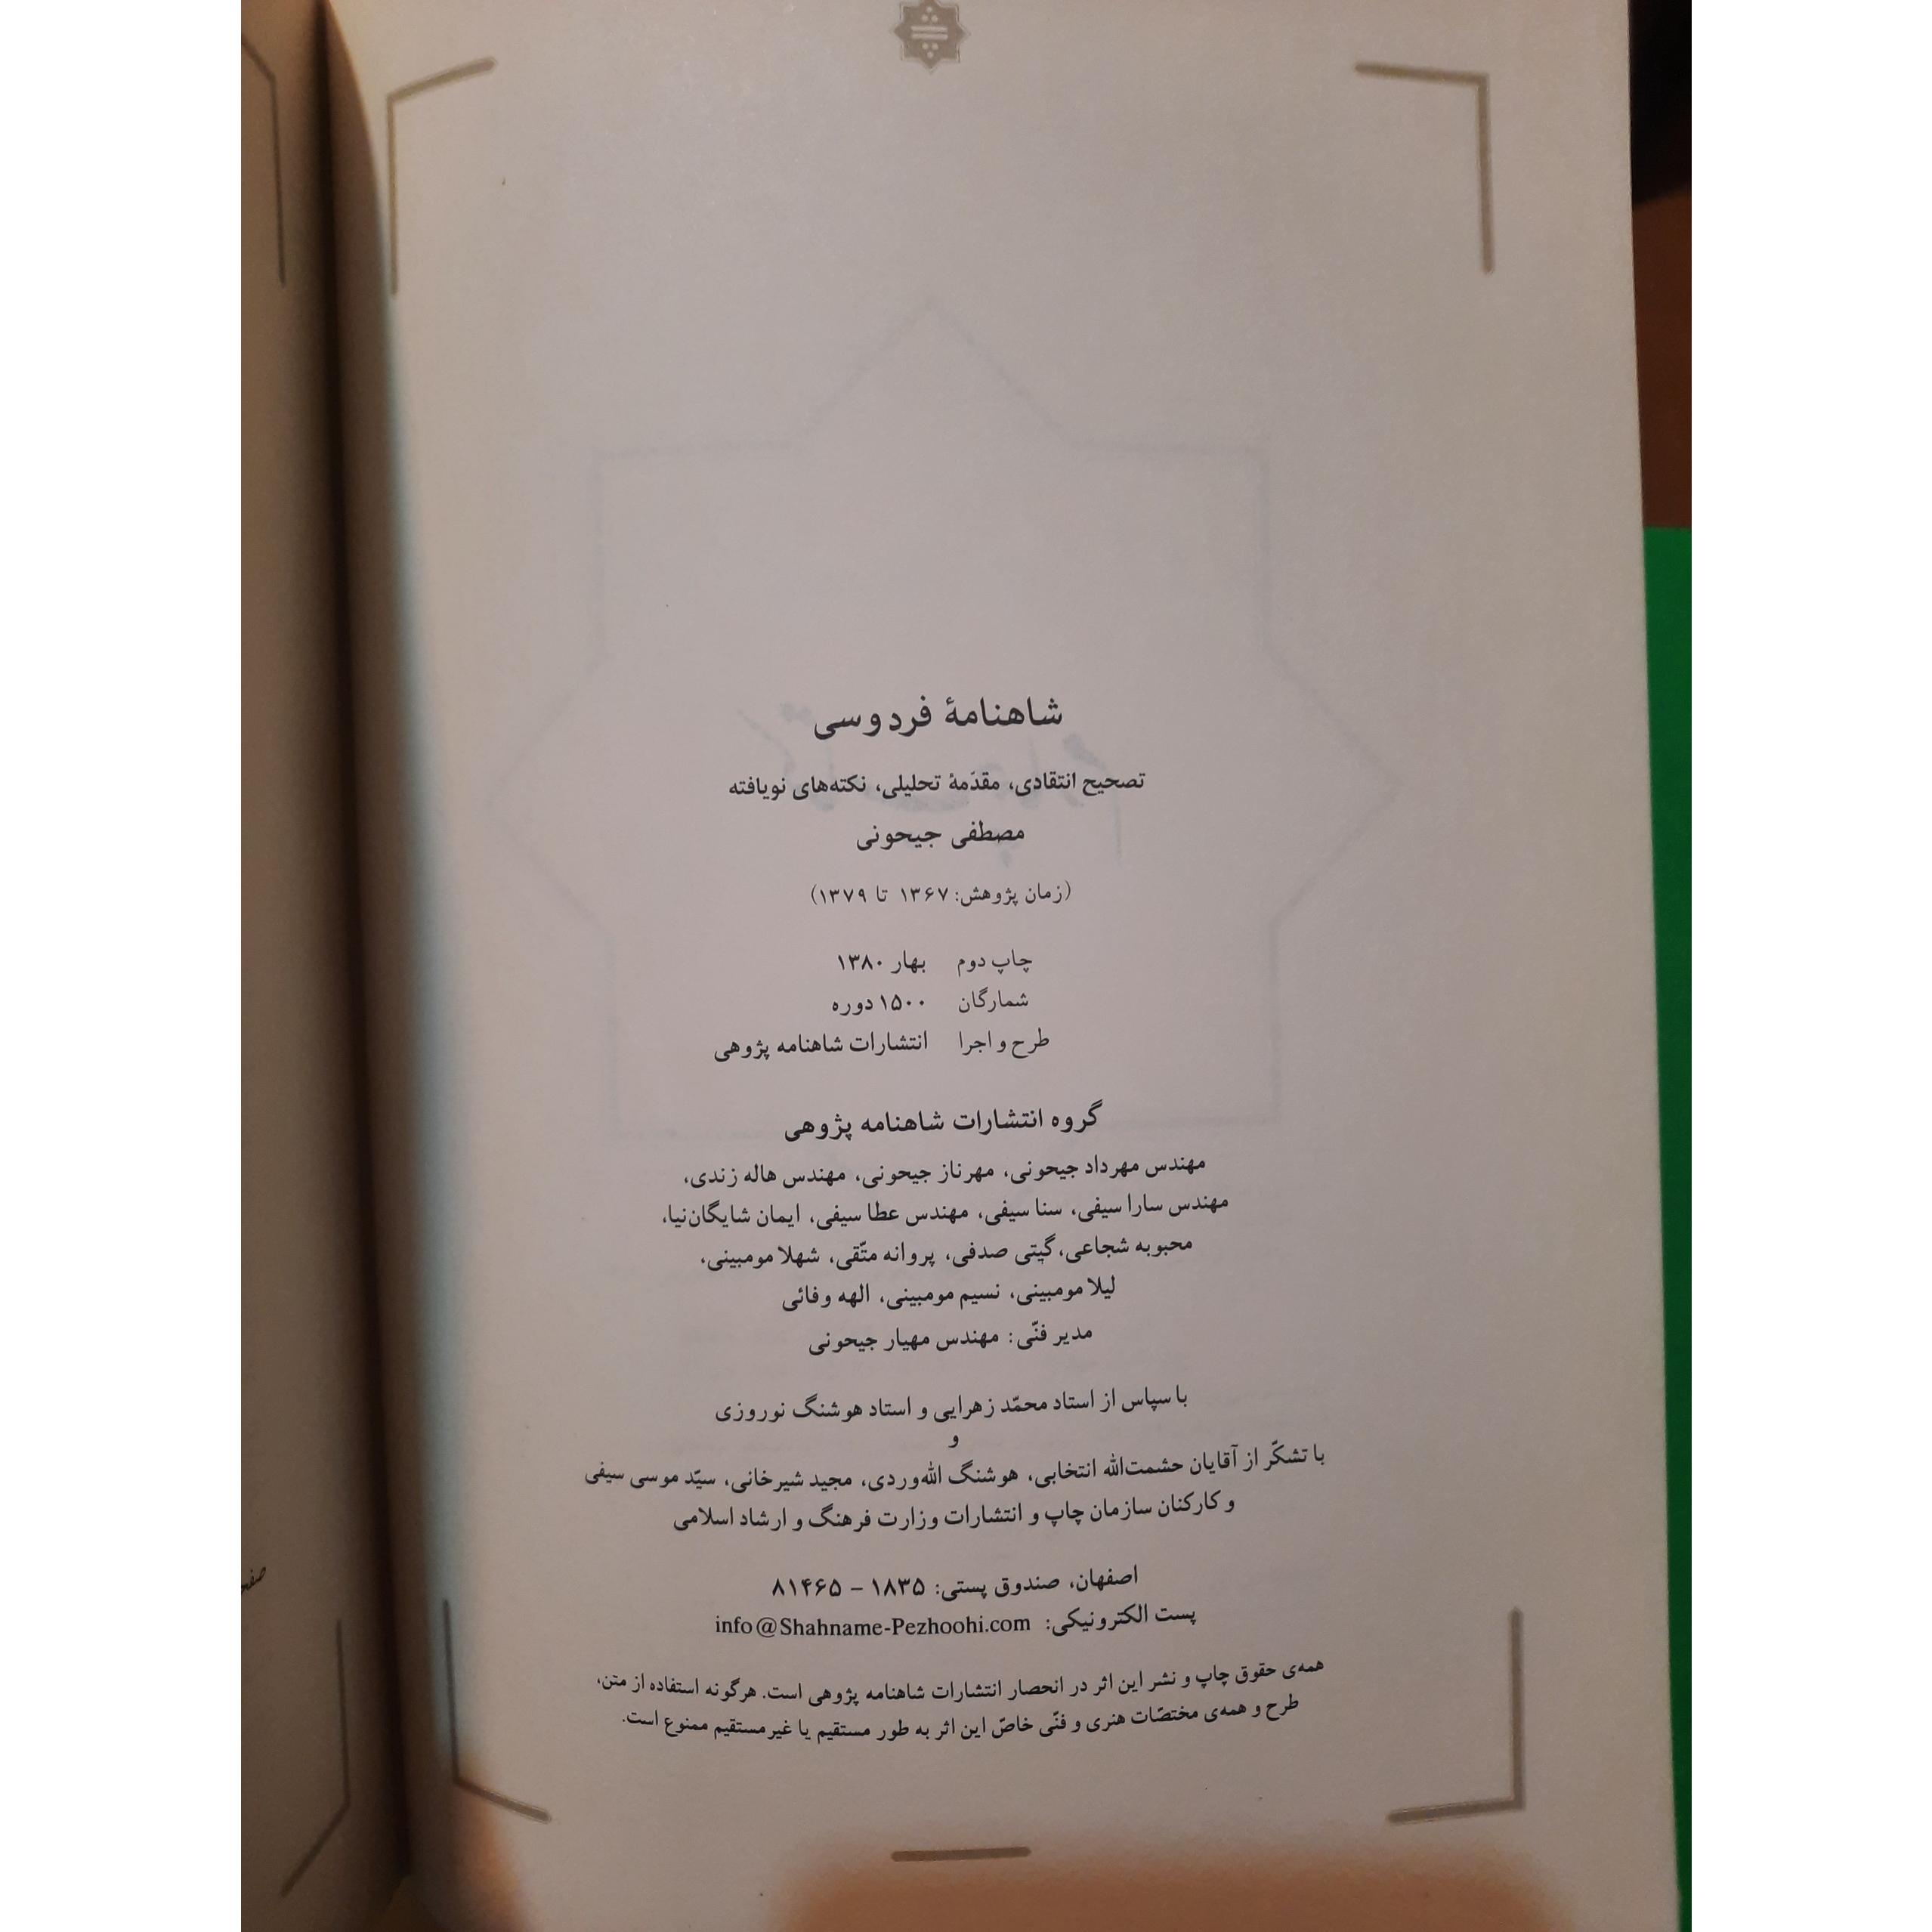 شاهنامهٔ فردوسی
تصحیح انتقادی، مقدّمهٔ تحلیلی، نکته‌های نویافته
مصطفی جیحونی
(زمان پژوهش: ۱۳۶۷ تا ۱۳۷۹)
چاپ دوم بهار ۱۳۸۰
شمارگان ۱۵۰۰ دوره
طرح و اجرا انتشارات شاهنامه پژوهی
گروه انتشارات شاهنامه پژوهی
مهندس مهرداد جیحونی، مهرناز جیحونی، مهندس هاله زندی،
مهندس سارا سیفی، سنا سیفی، مهندس عطا سیفی، ایمان شایگان‌نیا،
محبوبه شجاعی، گیتی صدفی، پروانه متّقی، شهلا مومبینی،
لیلا مومبینی، نسیم مومبینی، الهه وفائی
مدیر فنّی: مهندس مهیار جیحونی
با سپاس از استاد محمّد زهرایی و استاد هوشنگ نوروزی
و
با تشکّر از آقایان حشمت‌الله انتخابی، هوشنگ الله‌وردی، مجید شیرخانی، سیّد موسی سیفی
و کارکنان سازمان چاپ و انتشارات وزارت فرهنگ و ارشاد اسلامی
اصفهان، صندوق پستی: ۱۸۳۵ – ۸۱۴۶۵
پست الکترونیکی: info@Shahname-Pezhoohi.com
همه‌ی حقوق چاپ و نشر این اثر در انحصار انتشارات شاهنامه پژوهی است. هرگونه استفاده از متن،
طرح و همه‌ی مختصّات هنری و فنّی خاصّ این اثر به طور مستقیم یا غیرمستقیم ممنوع است.